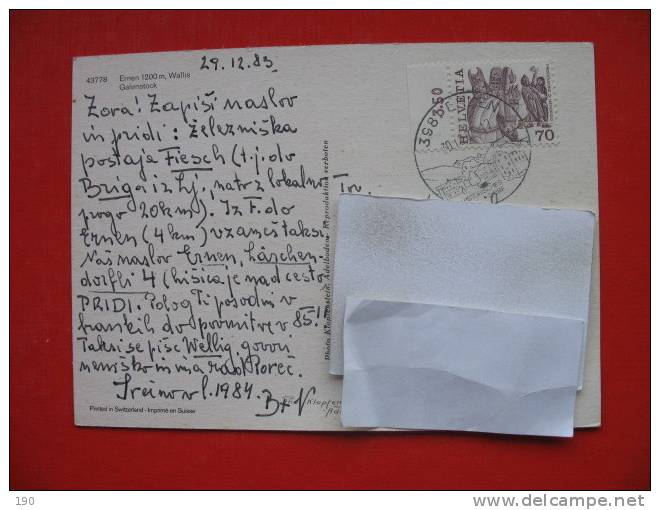 29.12.83
43778 Ernen 1200 m, Wallis
Galenstock
Zora! Zapiši naslov
in pridi: železniška
postaja Fiesch (t.j. do
Briga iz Lj., nato z lokalno
progo 20km). Iz F. do
Ernen (4km) vzameš taksi.
Naš naslov Ernen, Lärchen-
dörfli 4 (hišica je nad cesto
PRIDI. Polog Ti posodim v
frankih do povrnitve v 85!!
Taksi se piše Wellig govori
nemško in ima rad Poreč.
Srečno v l. 1984.
B+N
Printed in Switzerland - Imprimé en Suisse
Photo Klopfenstein, Adelboden. Reproduktion verboten
Tov.
HELVETIA
70
3.50
3981
190
www.delcampe.net